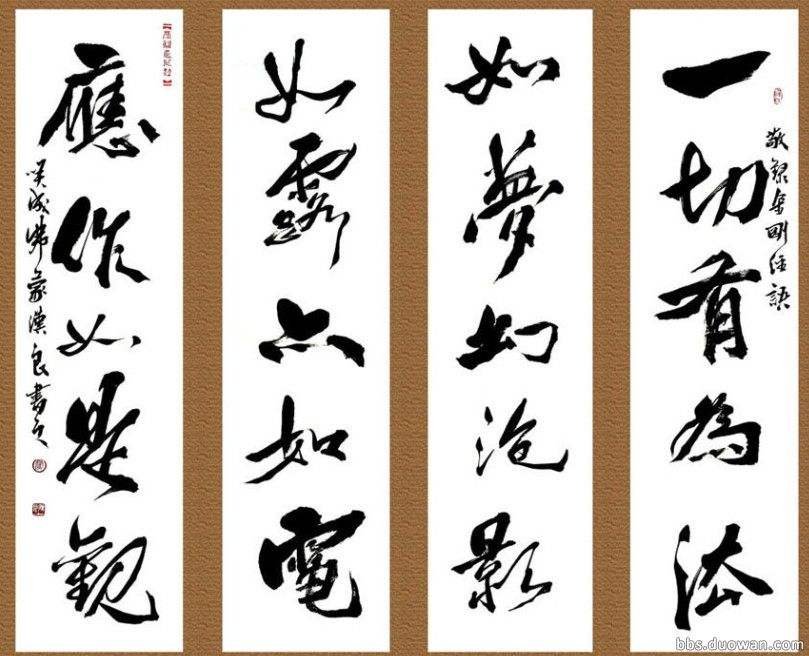 一切有為法
敬錄金剛經語
如夢幻泡影
如露亦如電
應作如是觀
漢良書之
bbs.duowan.com